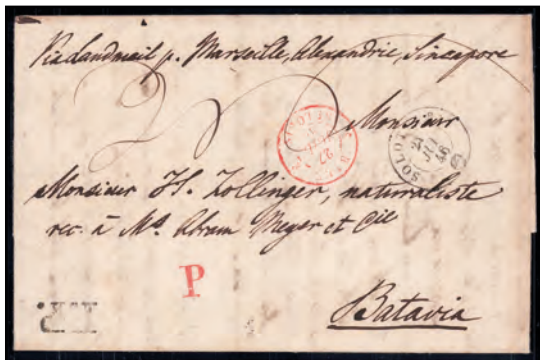 Via Landmail p. Marseille, Alexandrie, Sincapore
Monsieur
SOLO
Monsieur H. Zollinger, naturaliste
rec. à Mrs. Abram Meyer et Cie
P
Batavia